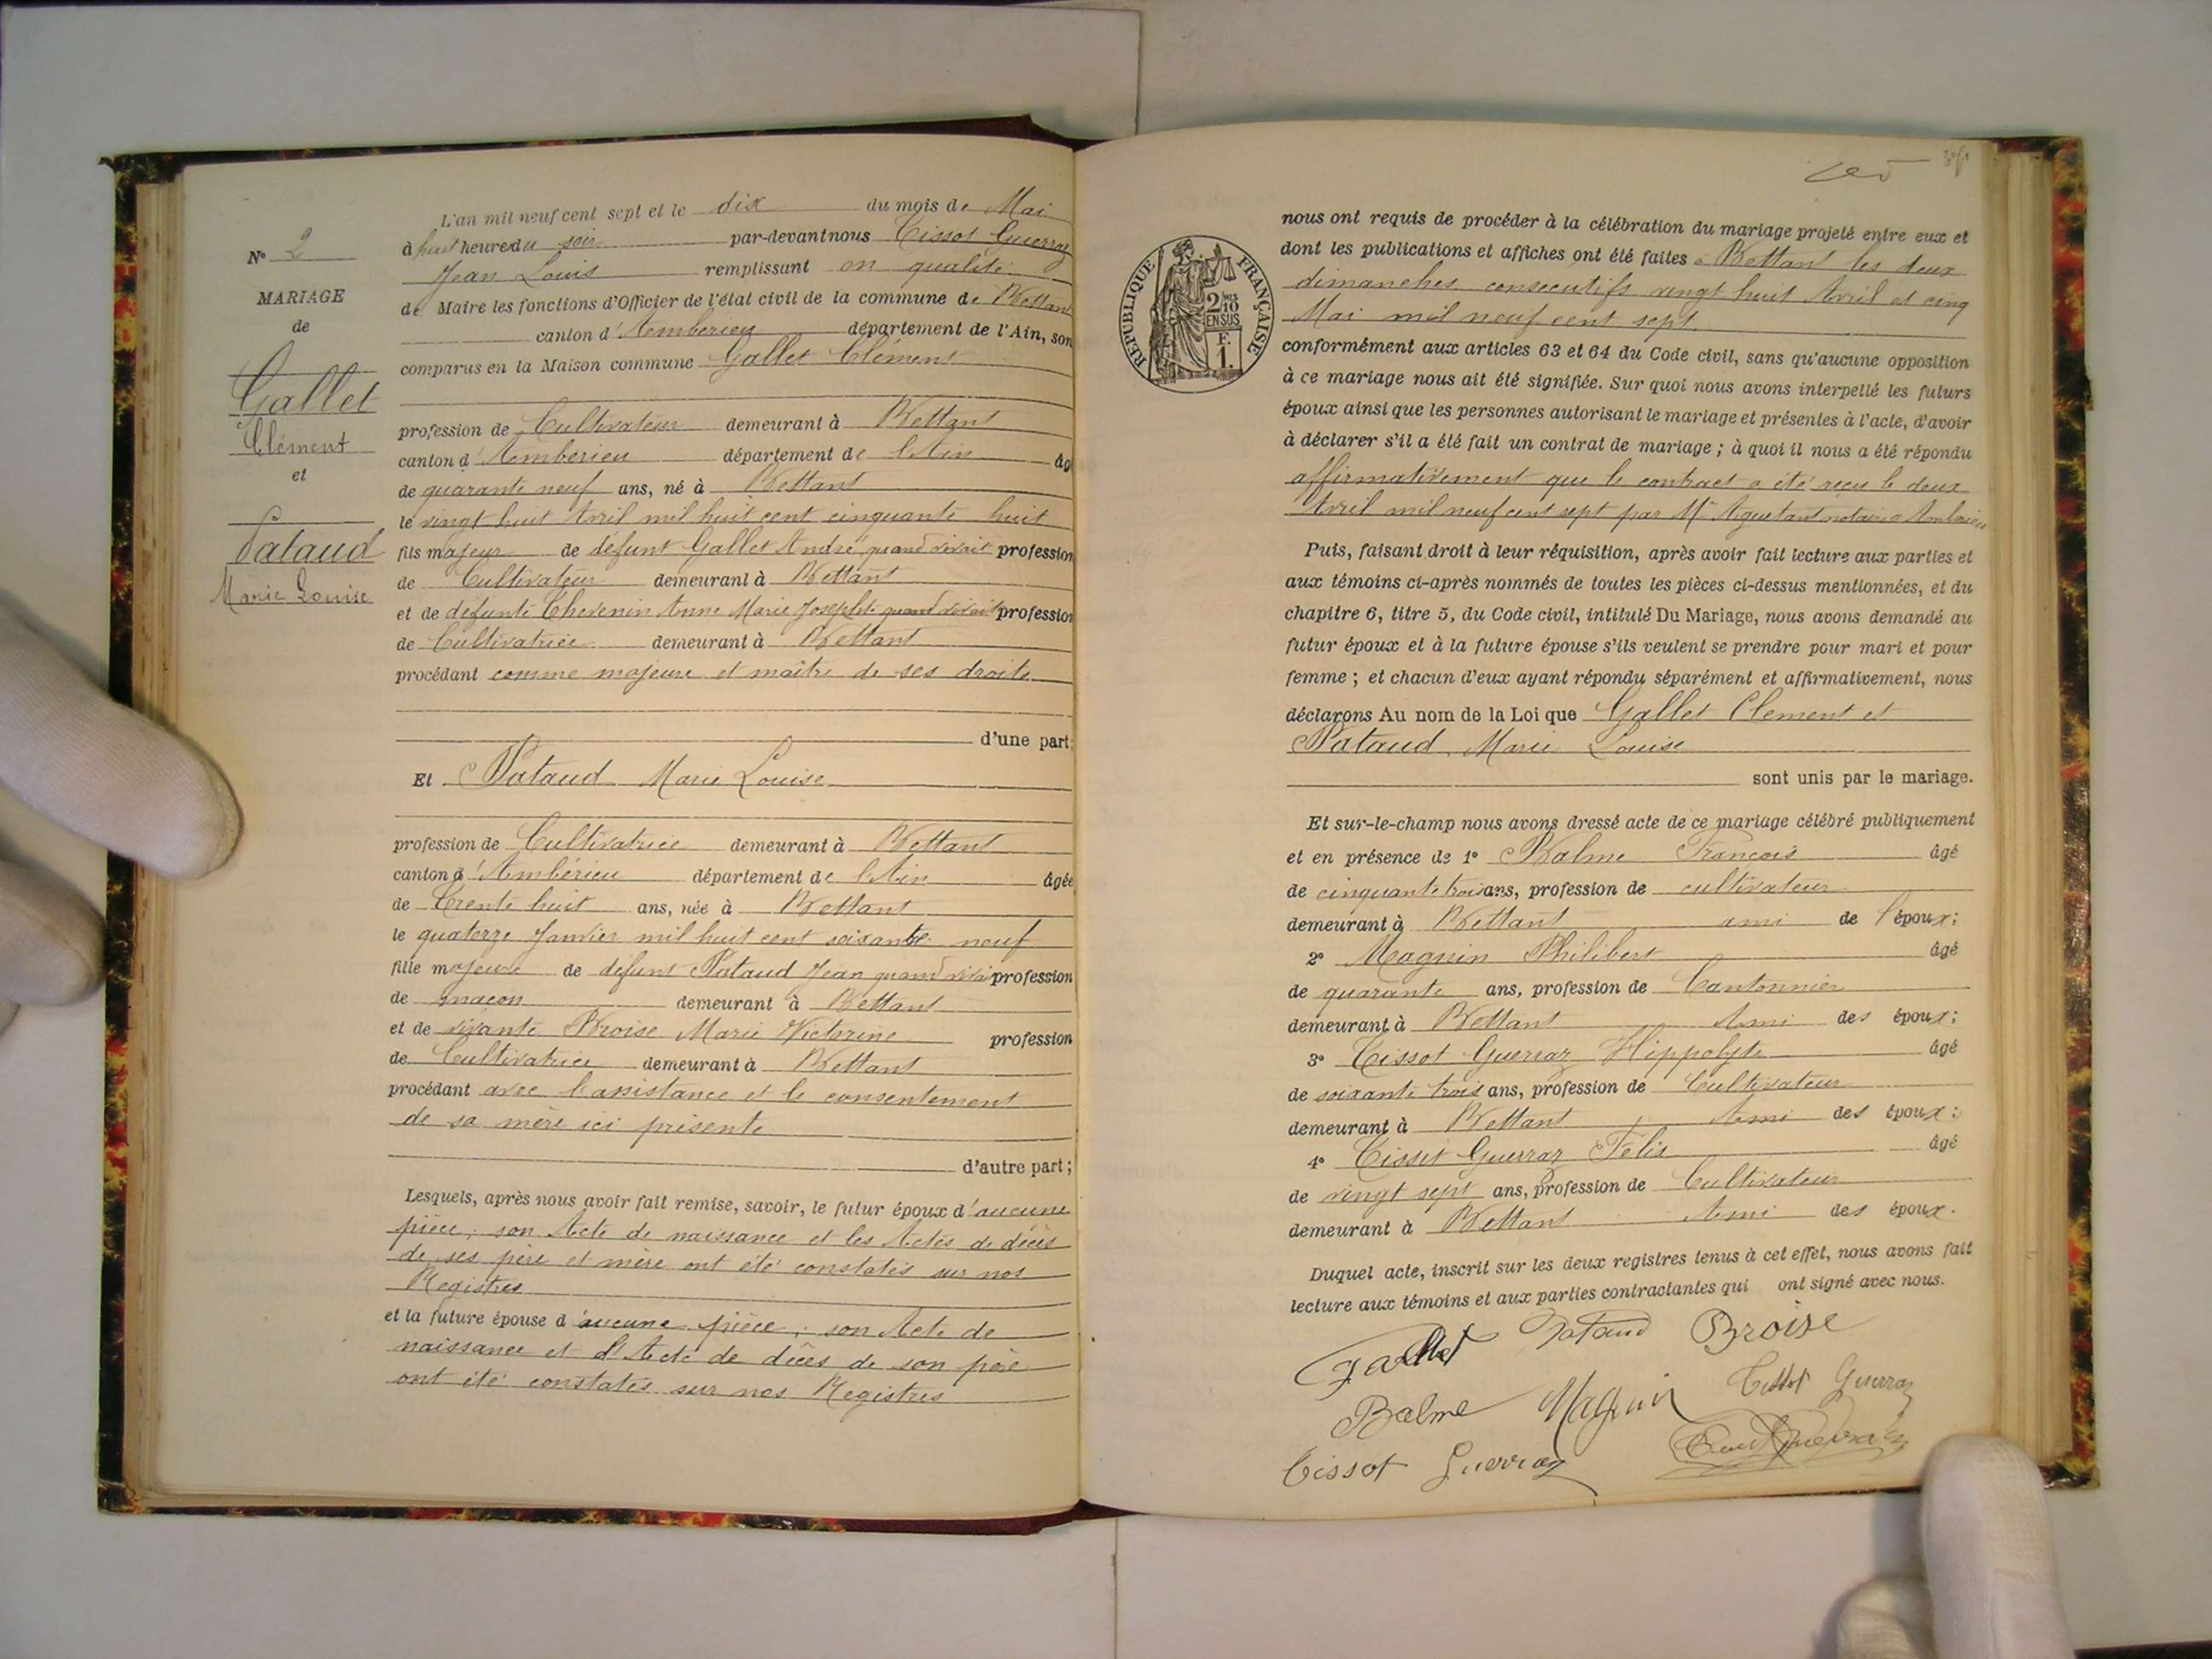 N° 2
MARIAGE
de
Gallet
Clément
et
Pataud
Marie Louise
L'an mil neuf cent sept et le dix du mois de Mai
à huit heure du soir par-devant nous Tissot Guerraz
Jean Louis remplissant en qualité
de Maire les fonctions d'Officier de l'état civil de la commune de Bettant
canton d'Ambérieu département de l'Ain, son
comparus en la Maison commune Gallet Clément
profession de Cultivateur demeurant à Bettant
canton d'Ambérieu département de l'Ain âg
de quarante neuf ans, né à Bettant
le vingt huit Avril mil huit cent cinquante huit
fils majeur de défunt Gallet André quand vivait profession
de Cultivateur demeurant à Bettant
et de défunte Chevenin Anne Marie Josephte quand vivait profession
de Cultivatrice demeurant à Bettant
procédant comme majeure et maître de ses droits
d'une part;
Et Pataud Marie Louise
profession de Cultivatrice demeurant à Bettant
canton d'Ambérieu département de l'Ain âgée
de Trente huit ans, née à Bettant
le quatorze Janvier mil huit cent soixante neuf
fille majeure de défunt Pataud Jean quand vivai profession
de maçon demeurant à Bettant
et de vivante Broise Marie Victorine profession
de Cultivatrice demeurant à Bettant
procédant avec l'assistance et le consentement
de sa mère ici présente
d'autre part;
Lesquels, après nous avoir fait remise, savoir, le futur époux d'aucune
pièce; son Acte de naissance et les Actes de décès
de ses père et mère ont été constatés sur nos
Registres
et la future épouse d'aucune pièce; son Acte de
naissance et l'Acte de décès de son père
ont été constatés sur nos Registres
RÉPUBLIQUE FRANÇAISE
2/10
EN SUS
F.
1.
nous ont requis de procéder à la célébration du mariage projeté entre eux et
dont les publications et affiches ont été faites à Bettant les deux
dimanches consecutifs vingt huit Avril et cinq
Mai mil neuf cent sept
conformément aux articles 63 et 64 du Code civil, sans qu'aucune opposition
à ce mariage nous ait été signifiée. Sur quoi nous avons interpellé les futurs
époux ainsi que les personnes autorisant le mariage et présentes à l'acte, d'avoir
à déclarer s'il a été fait un contrat de mariage; à quoi il nous a été répondu
affirmativement que le contract a été reçu le deux
Avril mil neuf cent sept par Me Aguetant notaire a Ambérieu
Puis, faisant droit à leur réquisition, après avoir fait lecture aux parties et
aux témoins ci-après nommés de toutes les pièces ci-dessus mentionnées, et du
chapitre 6, titre 5, du Code civil, intitulé Du Mariage, nous avons demandé au
futur époux et à la future épouse s'ils veulent se prendre pour mari et pour
femme; et chacun d'eux ayant répondu séparément et affirmativement, nous
déclarons Au nom de la Loi que Gallet Clement et
Pataud Marie Louise
sont unis par le mariage.
Et sur-le-champ nous avons dressé acte de ce mariage célébré publiquement
et en présence de 1° Balme François âgé
de cinquante trois ans, profession de cultivateur
demeurant à Bettant ami de l'époux;
2° Magnin Philibert âgé
de quarante ans, profession de Cantonnier
demeurant à Bettant Ami des époux;
3° Tissot Guerraz Hippolyte âgé
de soixante trois ans, profession de Cultivateur
demeurant à Bettant Ami des époux;
4° Tissot Guerraz Félix âgé
de vingt sept ans, profession de Cultivateur
demeurant à Bettant Ami des époux.
Duquel acte, inscrit sur les deux registres tenus à cet effet, nous avons fait
lecture aux témoins et aux parties contractantes qui ont signé avec nous.
Gallet Pataud Broise
Balme Magnin Tissot Guerraz
Tissot Guerraz